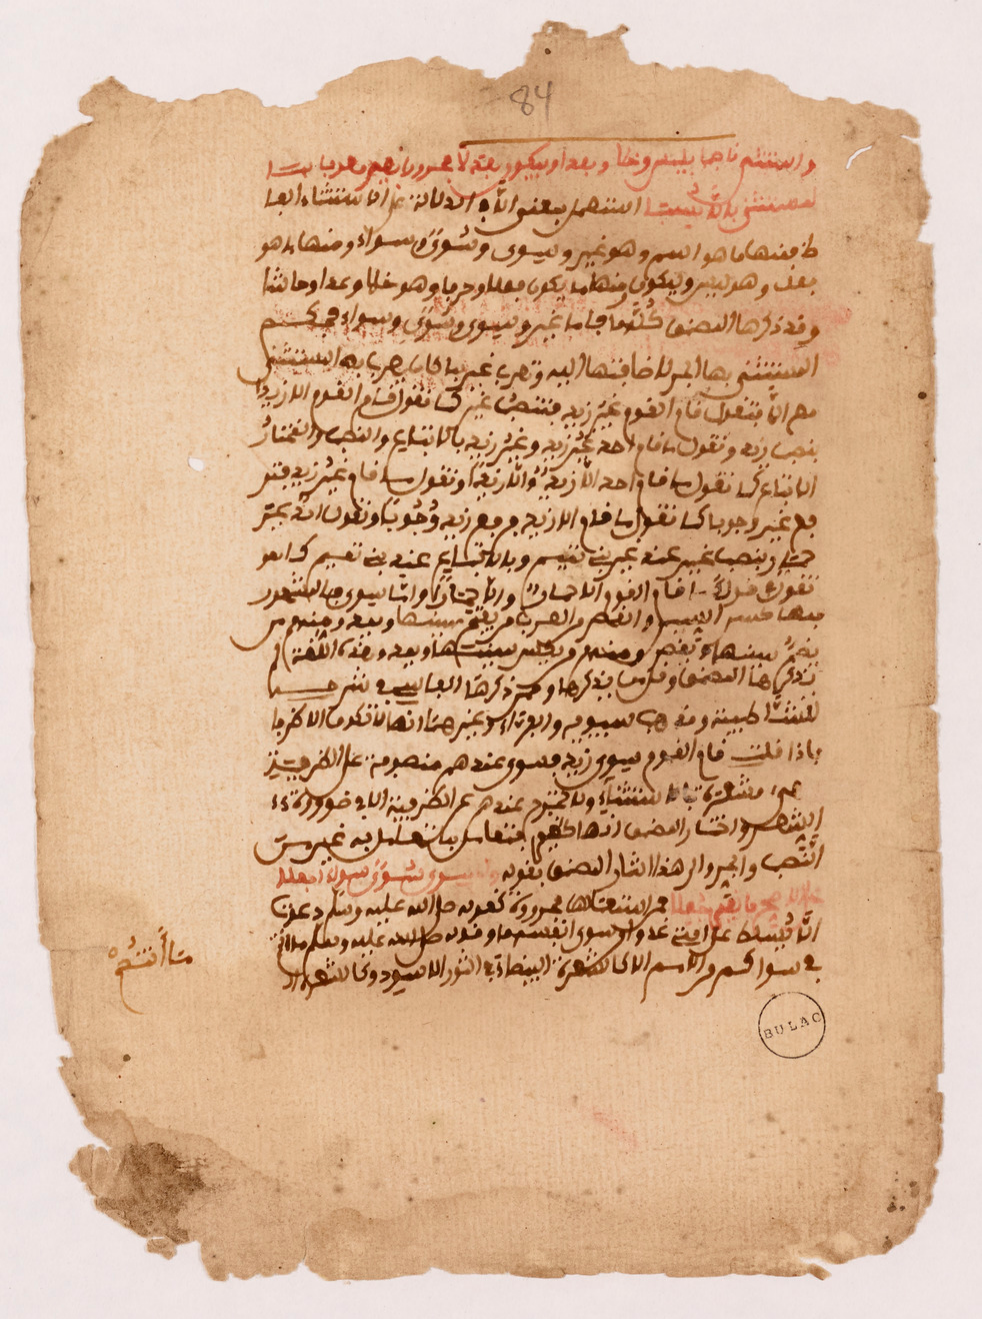 84
واستثن ناصبا بليس وخلا وبعدا وبيكون بعد لا
استعمل بمعنى إلا في الدلالة على الاستثناء ألفا
ظ فمنها ما هو اسم وهو غير وسوى وسُوَى وسواء ومنها ما هو
فعل وهو ليس ولا يكون ومنها ما يكون فعلا وحرفا وهو خلا وعدا وحاشا
وقد ذكرها المصنف كلها فاما غير وسوى وسُوى وسواء فحكم
المستثنى بها الجر لاضافتها اليه وتعرب غير بما كان يعرب به المستثنى
مع الا فتقول قام القوم غيرَ زيد بنصب غير كما تقول قام القوم الا زيدا
بنصب زيد وتقول ما قام احد غيرُ زيد وغيرَ زيد بالاتباع والنصب والمختار
الاتباع كما تقول ما قام احد الا زيدٌ والا زيدًا وتقول ما قام غيرُ زيد فتر
فع غير وجوبا كما تقول ما قام الا زيد برفع زيد وُجُوبًا وتقول ما قام احد غير
حمار بنصب غير عند غير بني تميم وبالاتباع عند بني تميم كما تفعل
في قولك ما قام القوم الا حمارٌ والا حمارًا واما سوى فالمشهور
فيها كسر السين والقصر ومن العرب من يفتح سينها ويمد ومنهم من
يضم سينها ويقصر ومنهم من يكسر سينها ويمد وهذه اللغة لم
يذكرها المصنف وقل من ذكرها وممن ذكرها الفاسي في شرحه
للشاطبية ومذهب سيبويه والفراء وغيرهما انها لا تكون الا ظرفا
فاذا قلت قام القوم سوى زيد فسوى عندهم منصوبة على الظرفية
وهي مشعرة بالاستثناء ولا تخرج عندهم عن الظرفية الا في ضرورة
الشعر واختار المصنف انها كغير فتعامل بما تعامل به غير من
النصب والجر والى هذا اشار المصنف بقوله ولسوى سُوى سواء اجعلا
على الاصح ما لغير جعلا فمن استعمالها مجرورة كقوله صلى الله عليه وسلم دعوت
ربي الا يسلط على امتي عدوا من سوى انفسهم وقوله صلى الله عليه وسلم ما انتم
في سواكم من الامم الا كالشعرة البيضاء في الثور الاسود وكالشعرة
ما أنتُمْ
BULAC